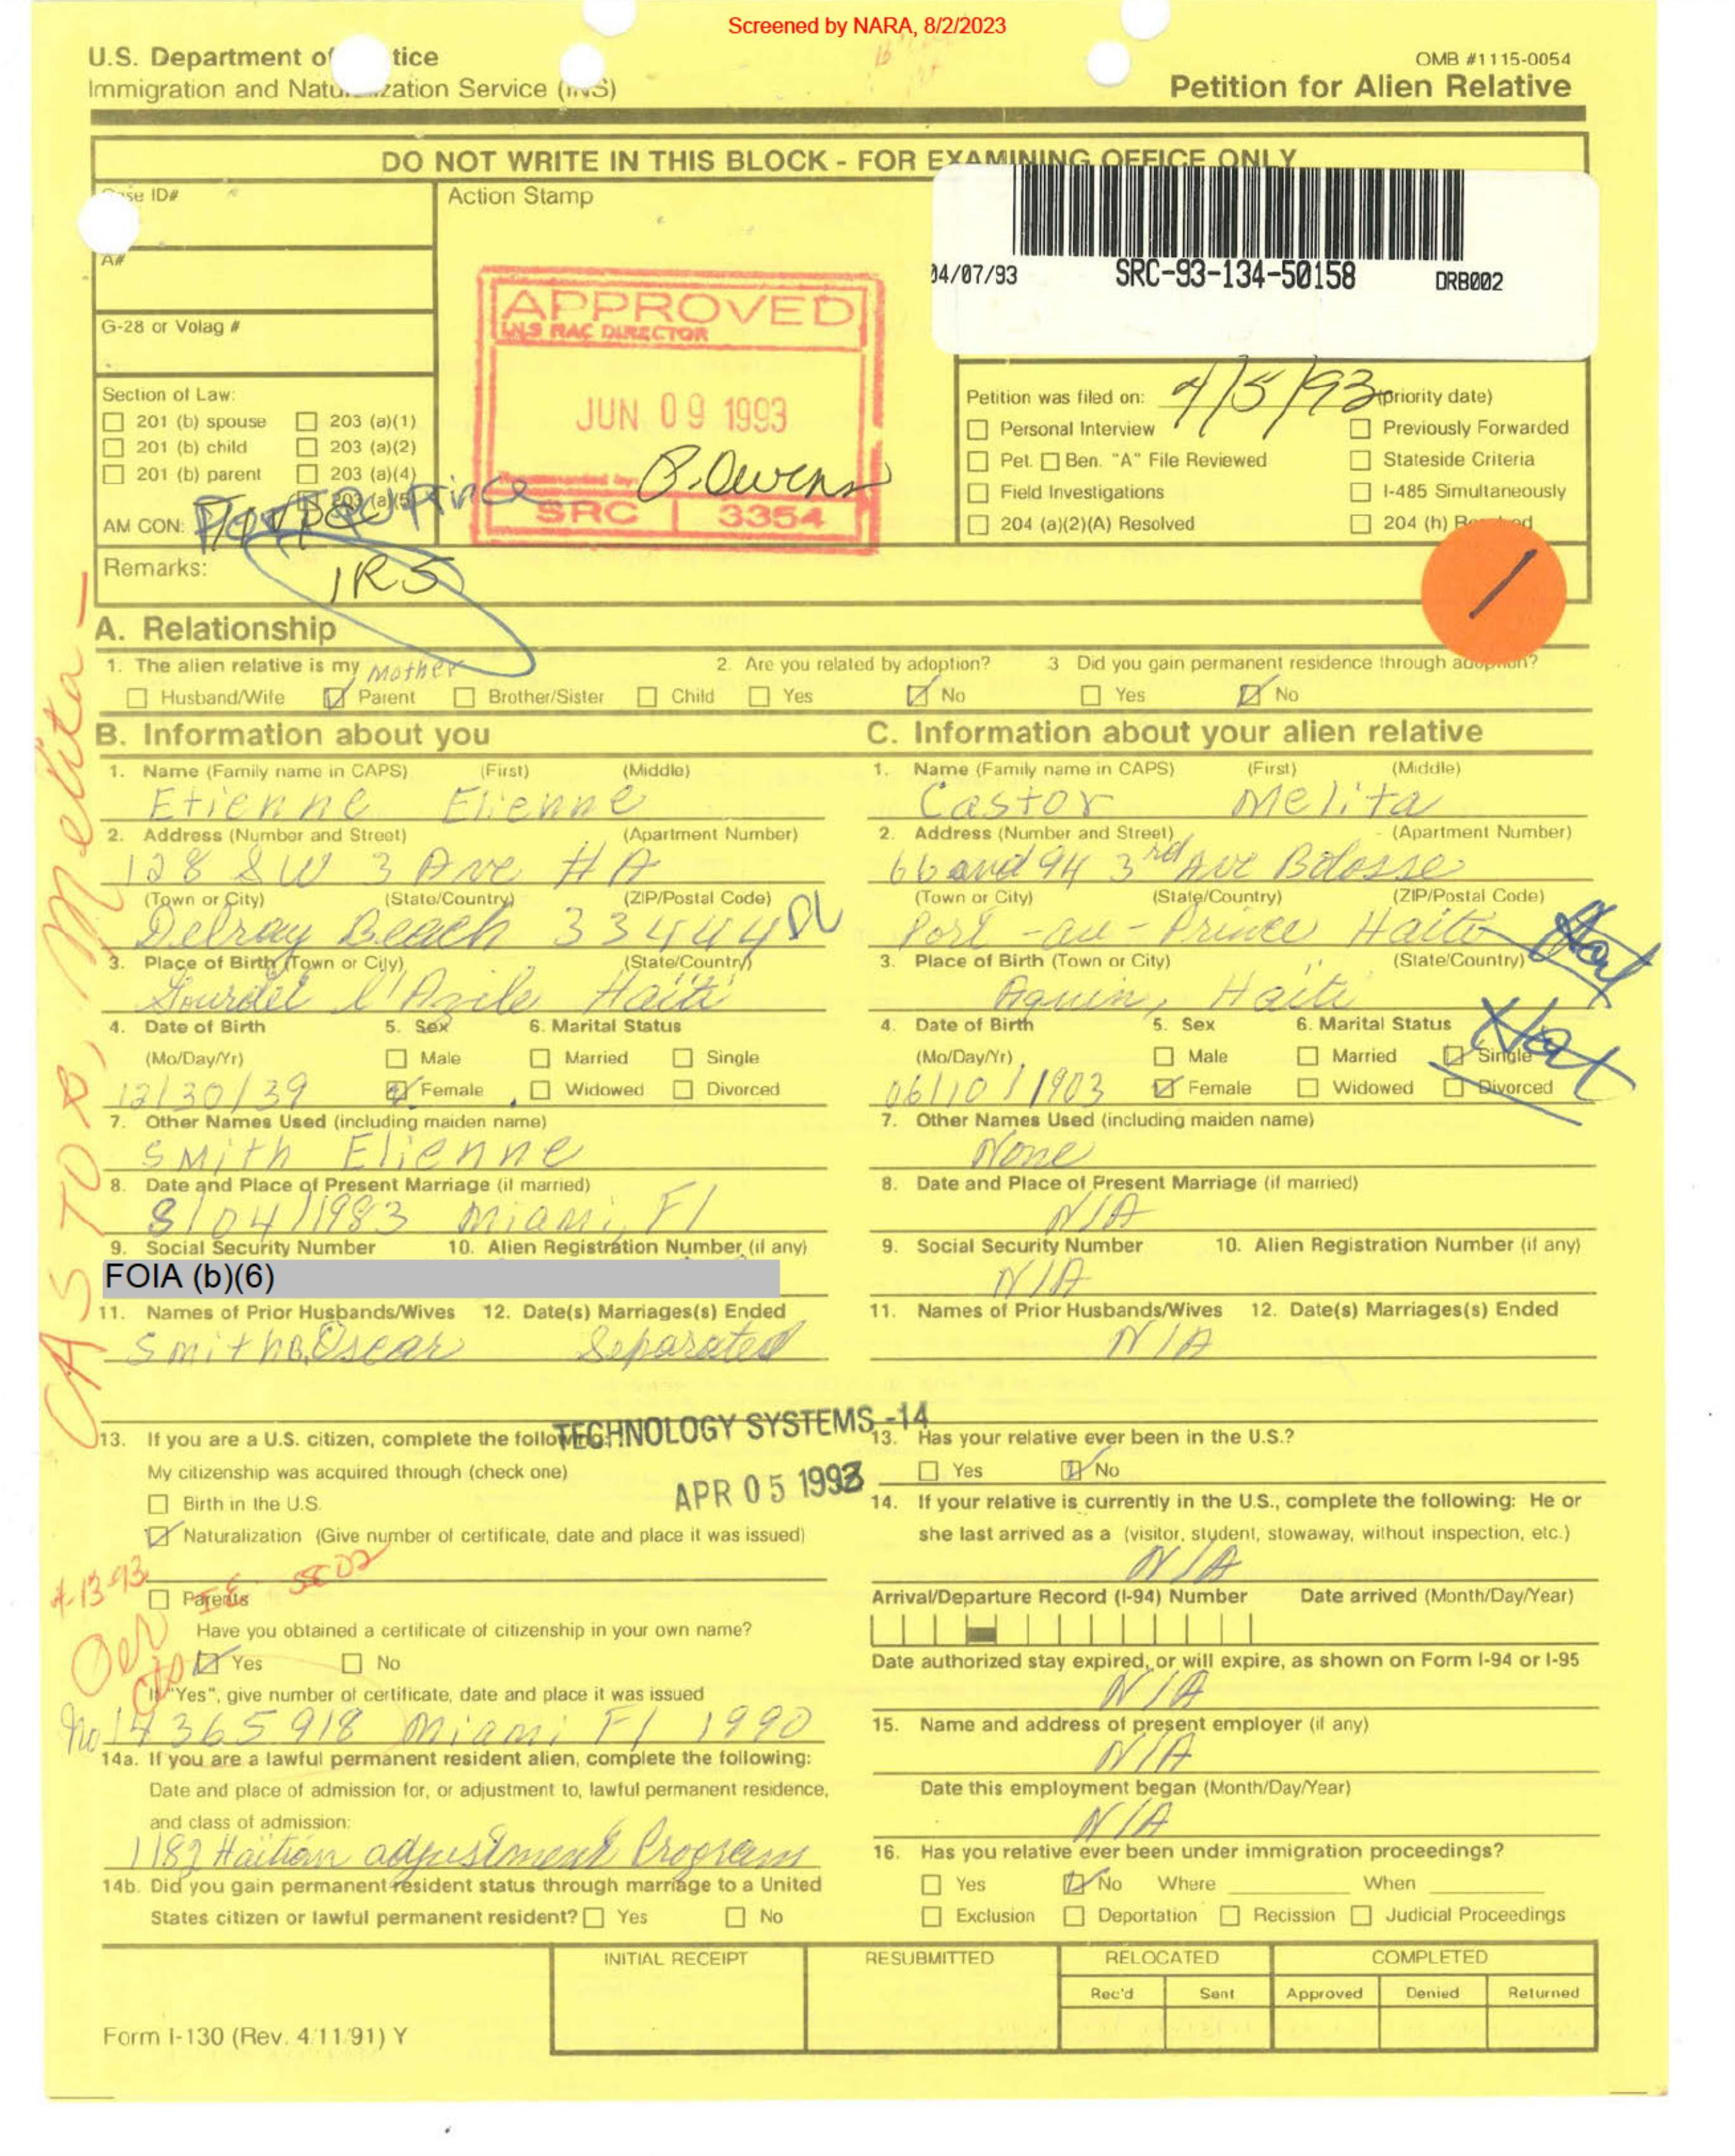 Screened by NARA, 8/2/2023
U.S. Department of tice
Immigration and Natu zation Service (INS)
OMB #1115-0054
Petition for Alien Relative
DO NOT WRITE IN THIS BLOCK - FOR EXAMINING OFFICE ONLY
ase ID#
Action Stamp
A#
G-28 or Volag #
04/07/93 SRC-93-134-50158 DRB002
APPROVED
INS RAC DIRECTOR
JUN 09 1993
Recommended by:
B. Owens
SRC 3354
Section of Law:
201 (b) spouse 203 (a)(1)
201 (b) child 203 (a)(2)
201 (b) parent 203 (a)(4)
203 (a)(5)
AM CON: Port au Prince
Petition was filed on: 4/5/93 (priority date)
Personal Interview Previously Forwarded
Pet. Ben. "A" File Reviewed Stateside Criteria
Field Investigations I-485 Simultaneously
204 (a)(2)(A) Resolved 204 (h)
Remarks: IR5
/
CASTOR, Melita -
A. Relationship
1. The alien relative is my Mother
Husband/Wife Parent Brother/Sister Child
2. Are you related by adoption?
Yes No
3 Did you gain permanent residence through adoption?
Yes No
B. Information about you
1. Name (Family name in CAPS) (First) (Middle)
Etienne Elienne
2. Address (Number and Street) (Apartment Number)
128 SW 3 Ave #A
(Town or City) (State/Country) (ZIP/Postal Code)
Delray Beach 33444
3. Place of Birth (Town or City) (State/Country)
Gourdet l'Azile Haiti
4. Date of Birth 5. Sex 6. Marital Status
(Mo/Day/Yr) Male Married Single
12/30/39 Female Widowed Divorced
7. Other Names Used (including maiden name)
Smith Elienne
8. Date and Place of Present Marriage (if married)
8/04/1983 Miami, Fl
9. Social Security Number 10. Alien Registration Number (if any)
FOIA (b)(6)
11. Names of Prior Husbands/Wives 12. Date(s) Marriages(s) Ended
Smith Oscar Separated
TECHNOLOGY SYSTEMS -14
APR 05 1993
13. If you are a U.S. citizen, complete the following:
My citizenship was acquired through (check one)
Birth in the U.S.
Naturalization (Give number of certificate, date and place it was issued)
4-13-93
Parents
Have you obtained a certificate of citizenship in your own name?
Yes No
If "Yes", give number of certificate, date and place it was issued
No 14365918 Miami Fl 1990
14a. If you are a lawful permanent resident alien, complete the following:
Date and place of admission for, or adjustment to, lawful permanent residence,
and class of admission:
1182 Haitian adjustment Program
14b. Did you gain permanent resident status through marriage to a United
States citizen or lawful permanent resident? Yes No
C. Information about your alien relative
1. Name (Family name in CAPS) (First) (Middle)
Castor Melita
2. Address (Number and Street) (Apartment Number)
66 and 94 3rd Ave Bolosse
(Town or City) (State/Country) (ZIP/Postal Code)
Port-au-Prince Haiti
3. Place of Birth (Town or City) (State/Country)
Aquin, Haiti
4. Date of Birth 5. Sex 6. Marital Status
(Mo/Day/Yr) Male Married Single
06/10/1903 Female Widowed Divorced
7. Other Names Used (including maiden name)
None
8. Date and Place of Present Marriage (if married)
N/A
9. Social Security Number 10. Alien Registration Number (if any)
N/A
11. Names of Prior Husbands/Wives 12. Date(s) Marriages(s) Ended
N/A
13. Has your relative ever been in the U.S.?
Yes No
14. If your relative is currently in the U.S., complete the following: He or
she last arrived as a (visitor, student, stowaway, without inspection, etc.)
N/A
Arrival/Departure Record (I-94) Number Date arrived (Month/Day/Year)
Date authorized stay expired, or will expire, as shown on Form I-94 or I-95
N/A
15. Name and address of present employer (if any)
N/A
Date this employment began (Month/Day/Year)
N/A
16. Has you relative ever been under immigration proceedings?
Yes No Where When
Exclusion Deportation Recission Judicial Proceedings
INITIAL RECEIPT RESUBMITTED RELOCATED COMPLETED
Rec'd Sent Approved Denied Returned
Form I-130 (Rev. 4/11/91) Y